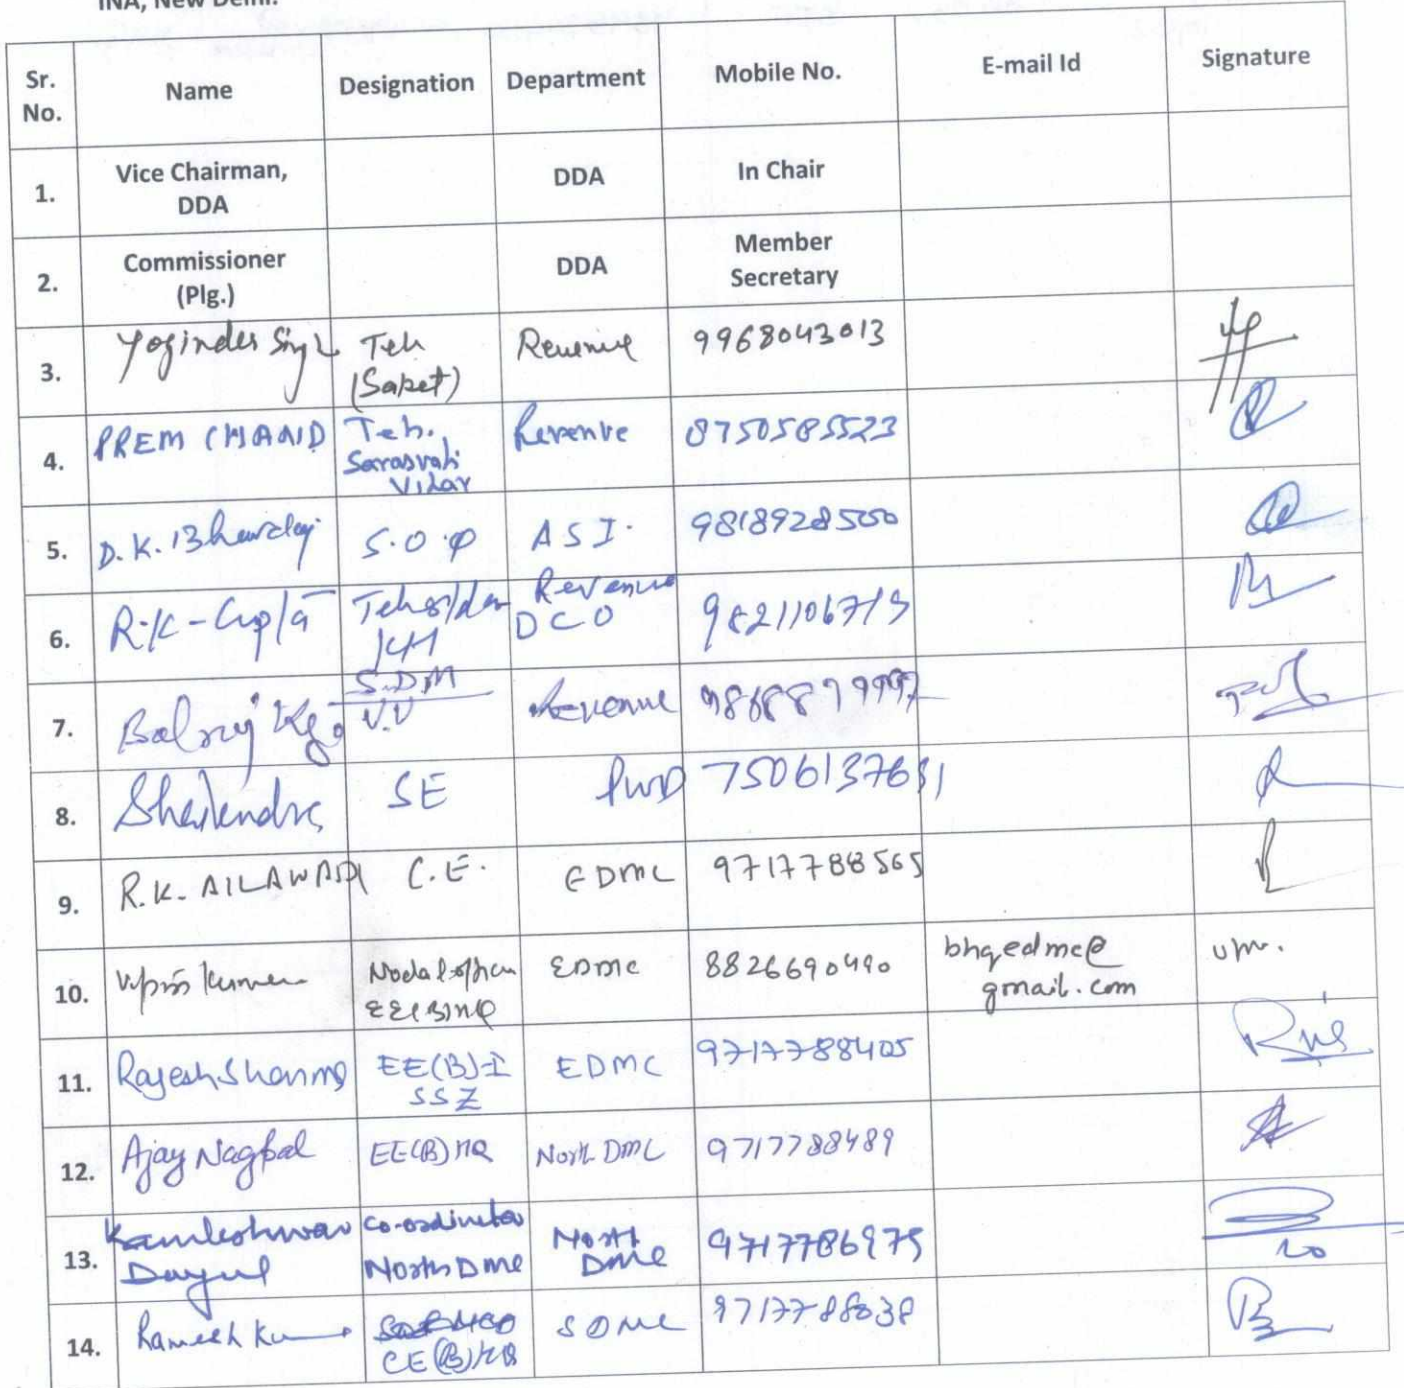 INA, New Delhi.
Sr. No. Name Designation Department Mobile No. E-mail Id Signature
1. Vice Chairman, DDA DDA In Chair
2. Commissioner (Plg.) DDA Member Secretary
3. Yoginder Singh Teh (Saket) Revenue 9968043013
4. PREM CHAND Teh. Sarasvati Vihar Revenue 8750585523
5. D.K. Bhardwaj S.O. ASI. 9818928500
6. R.K-Gupta Tehsildar Revenue DCO
7. S.D.M V.V Revenue
8. Shailendra SE PWD
9. R.K. AILAWADI C.E. EDMC 9717788565
10. Vipin Kumar Nodal officer EDMC 8826690490 bhqedmc@ gmail.com
11. Rajesh Sharma EE(B)-I SSZ EDMC 9717788405
12. Ajay Nagpal EE(B)HQ North DMC 9717788489
13. Kamleshwar Dayal Co-ordinator North DMC North DMC 9717786975
14. Ramesh Kumar SDMC 9717788038